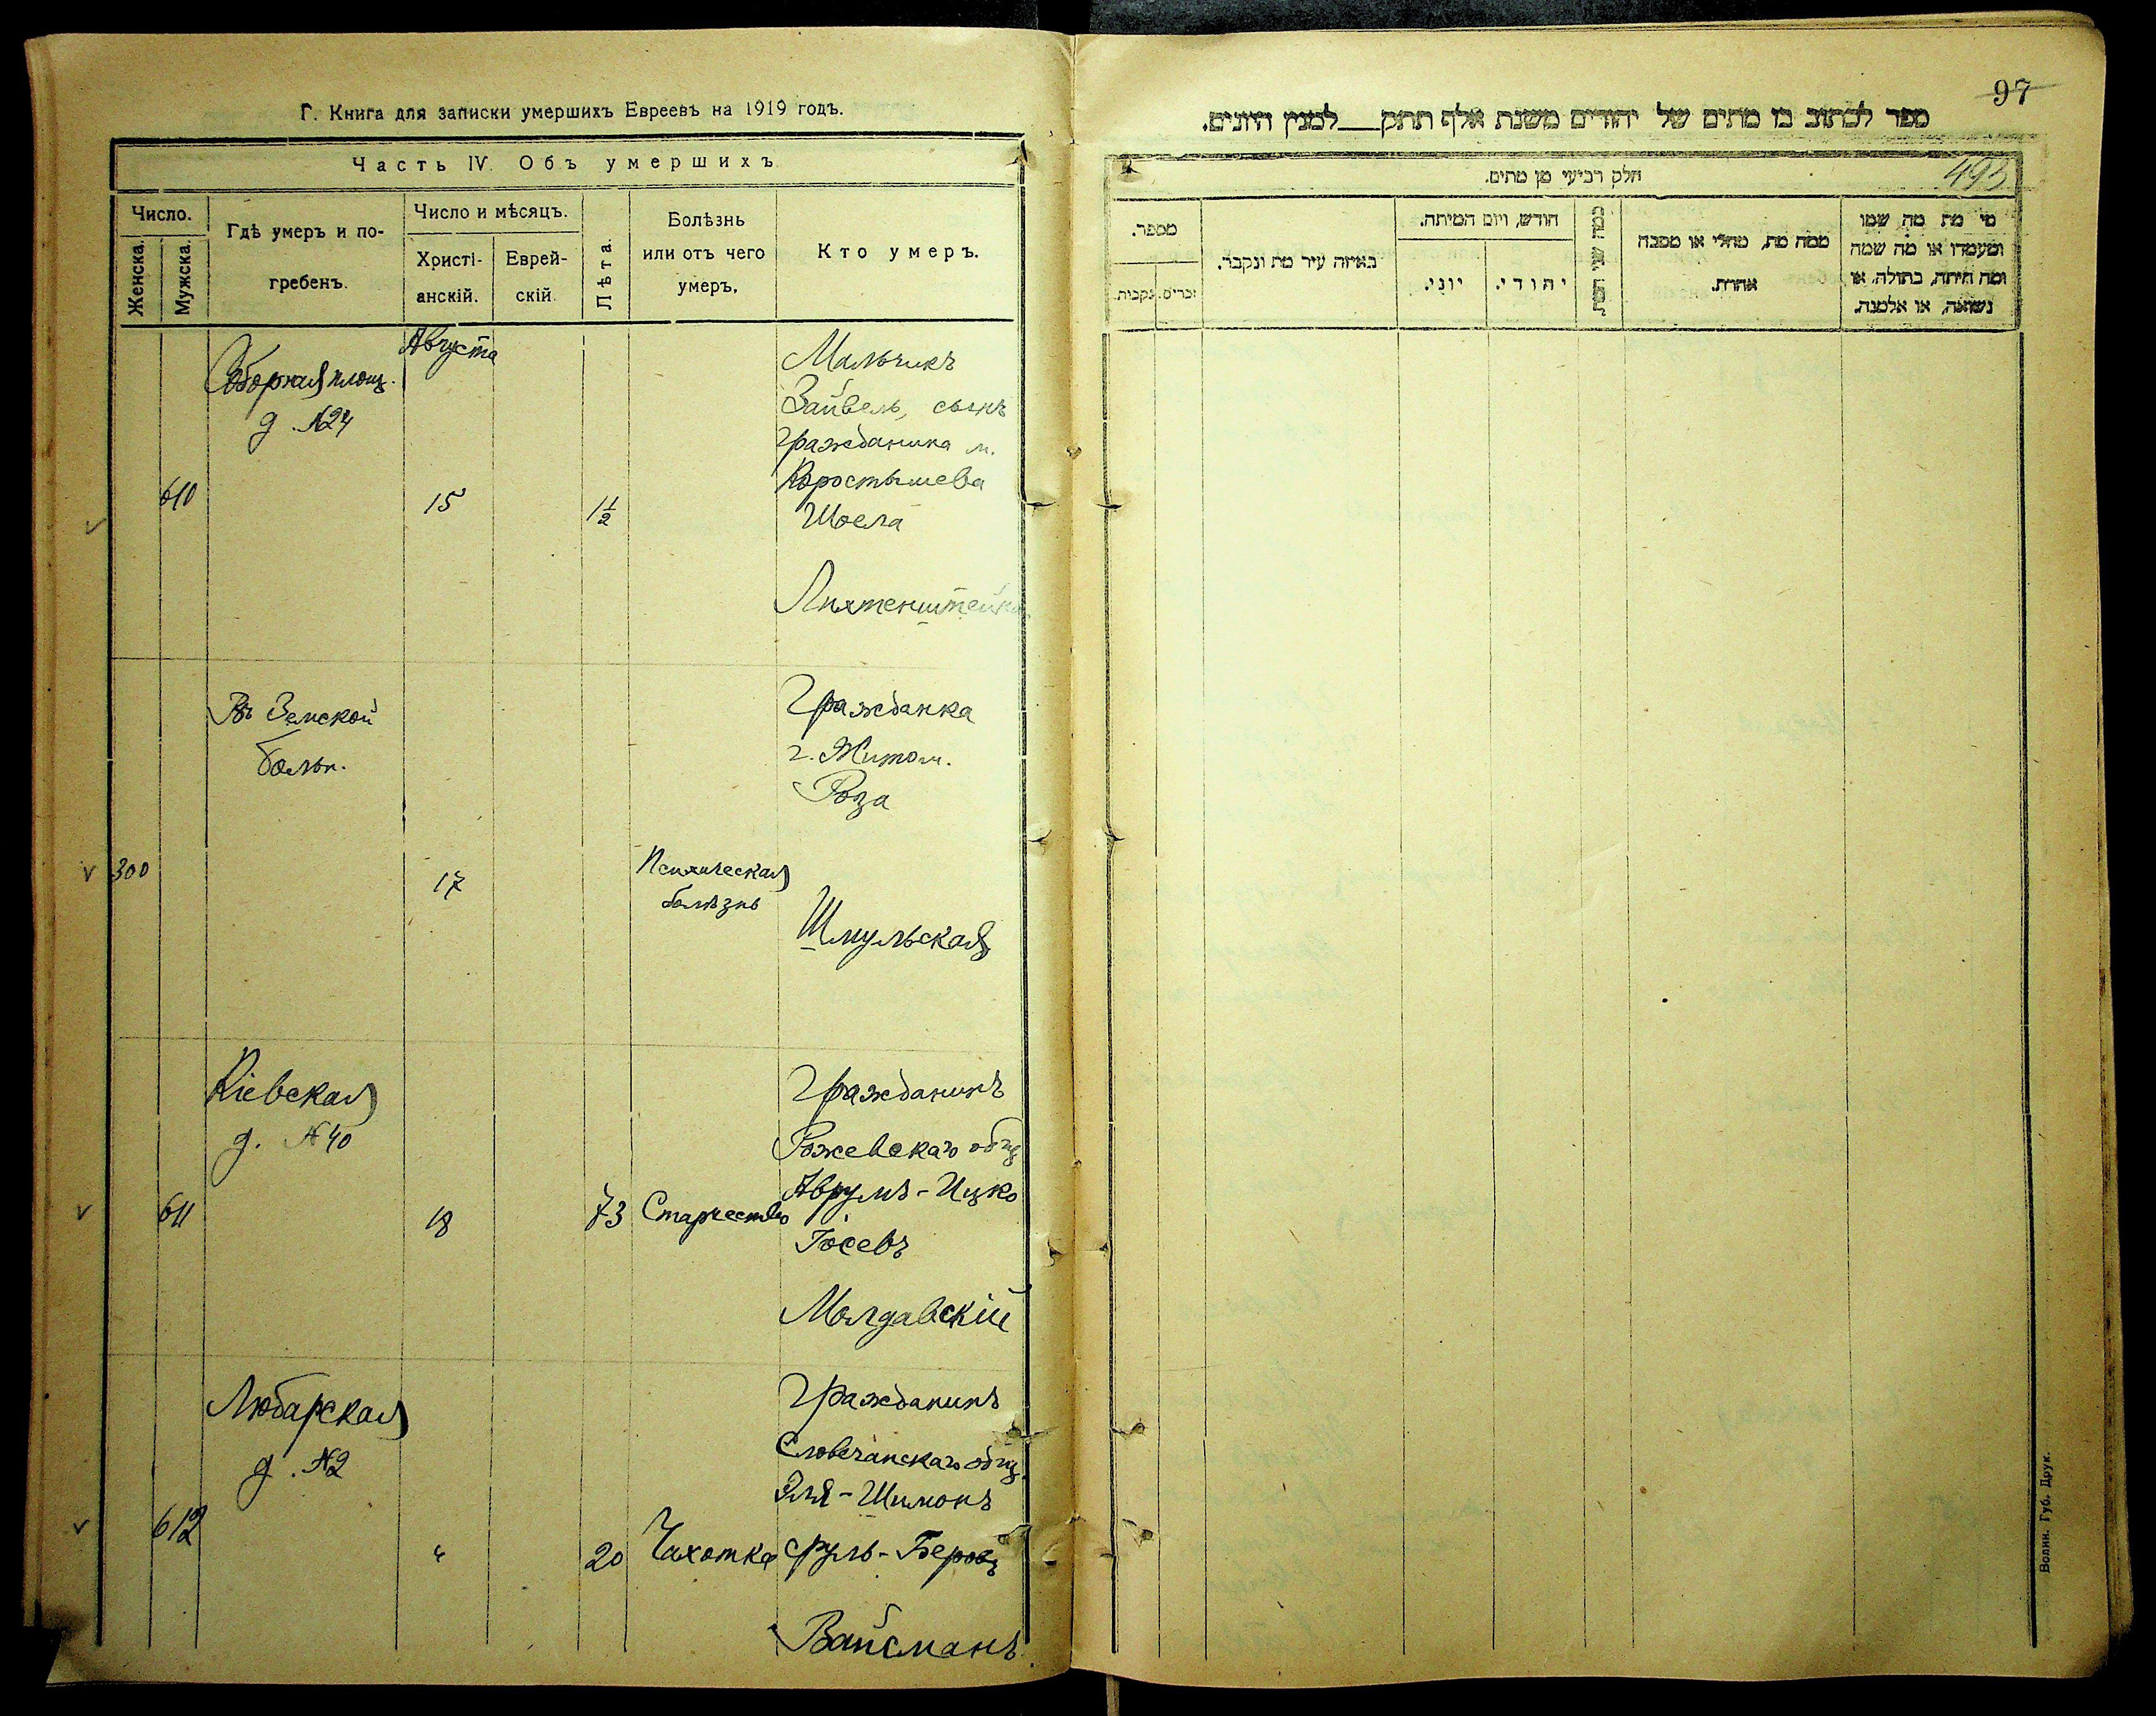 Г. Книга для записки умершихъ Евреевъ на 1919 годъ.
Часть IV. Объ умершихъ
Число.
Женска.
Мужска.
Гдѣ умеръ и по-
гребенъ.
Число и мѣсяцъ.
Христі-
анскій.
Еврей-
скій.
Лѣта.
Болѣзнь
или отъ чего
умеръ.
Кто умеръ.
Августа
Соборная площ.
д. №24
610
15
1½
Мальчикъ
Зайвель, сынъ
гражданина м.
Коростышева
Шоела
Лихтенштейна
Въ Земской
больн.
300
17
Психическая
болѣзнь
Гражданка
г. Житом.
Роза
Шмульская
Кіевская
д. №40
611
18
73
Старчество
Гражданинъ
Рожевскаго общ
Аврумъ-Ицко
Іосевъ
Молдавскій
Любарская
д. №2
612
"
20
Чахотка
Гражданинъ
Словечанскаго общ.
Эля-Шимонъ
Сруль-Беровъ
Вайсманъ
97
ספר לכתוב בו מתים של יהודים משנת אלף תתק__למנין היונים.
495
חלק רביעי מן מתים.
מספר.
זכרים.
נקבות.
באיזה עיר מת ונקבר.
חודש, ויום המיתה.
יוני.
יהודי.
כמה שני
ממה מת, מחלי או מסבה
אחרת.
מי מת מה שמו
ומעמדו או מה שמה
ומה היתה, בתולה, או
נשואה, או אלמנה.
Волин. Губ. Друк.